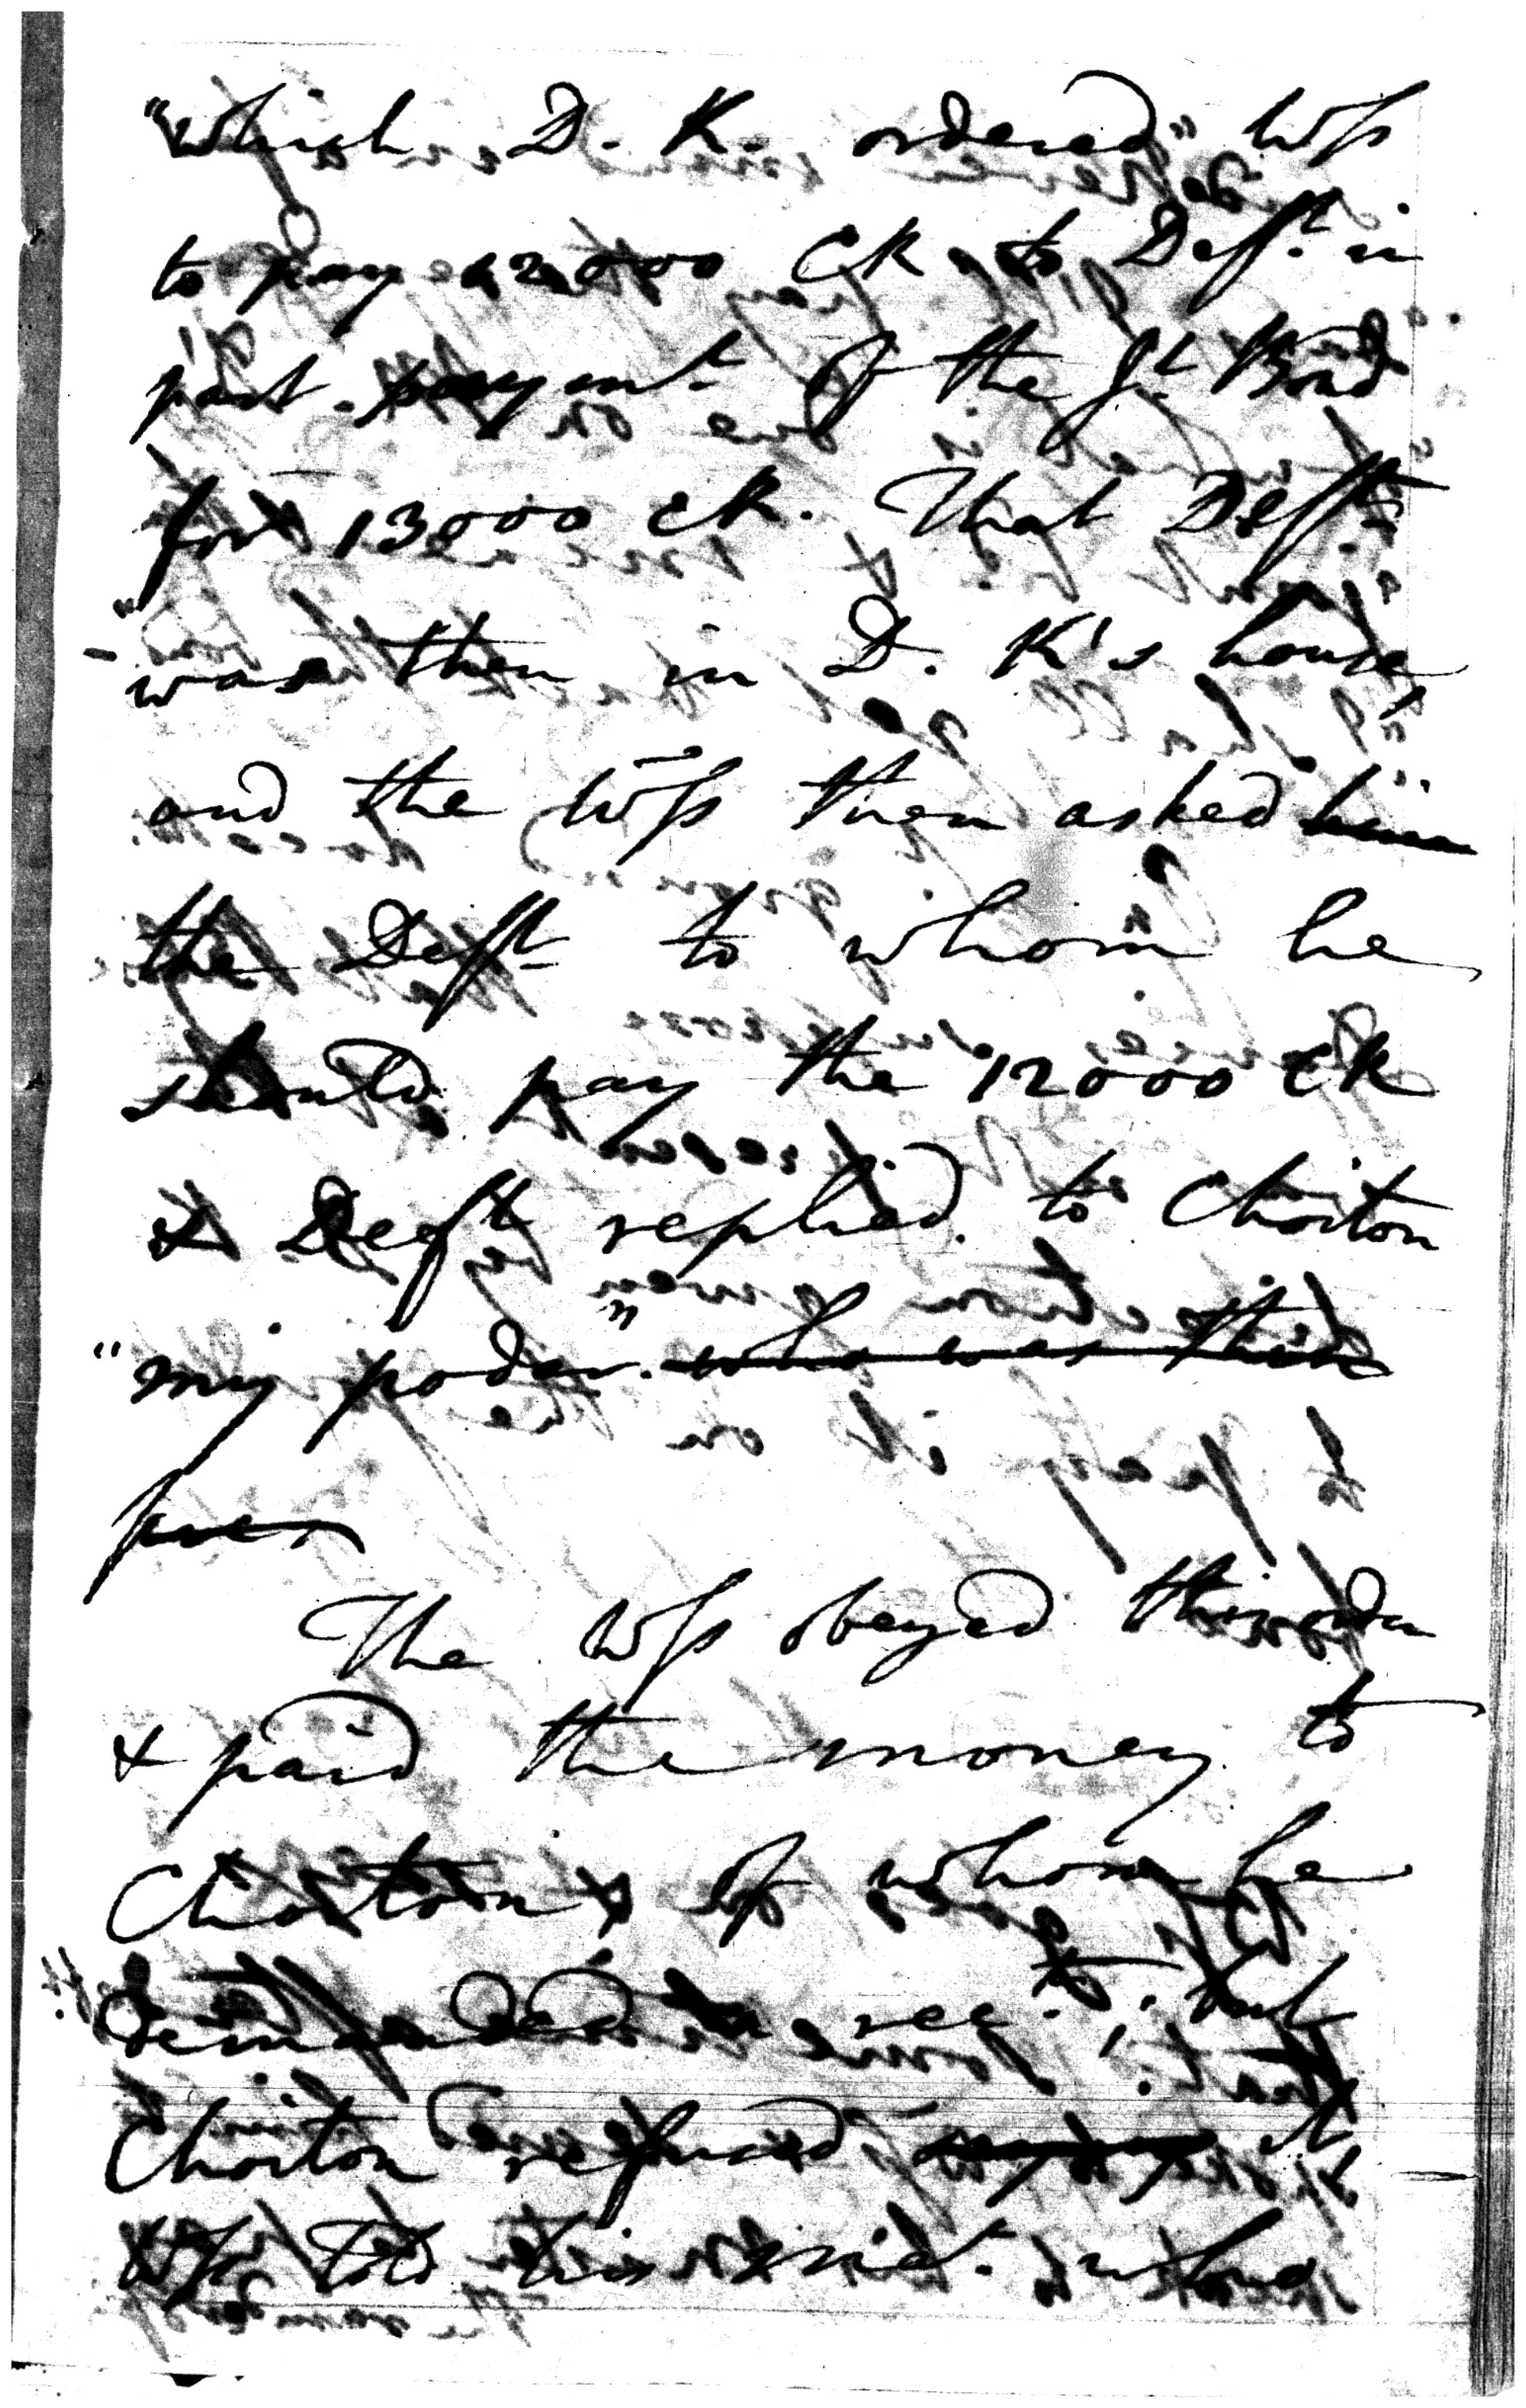 "which D. K. ordered" Wss
to pay 12000 CR to Deft. in
part paymt. of the jt. Bond
for 13000 CR. That Deft.
"was then in D. K's house,
and the Wss then asked him
the Deft to whom he
should pay the 12000 CR
& Deft replied to Choiton
"my poder." who was then
pres
The Wss obeyed this order
& paid the money to
Choiton & of whom he
demanded a rect., but
Choiton refused it,
Wss told this who